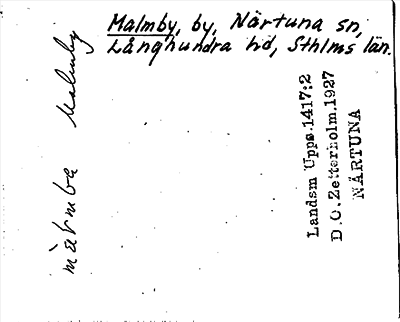 Malmby, by, Närtuna sn,
Långhundra hd, Sthlms län.
Malmby
Landsm Upps.1417:2
D.O.Zetterholm.1927
NÄRTUNA